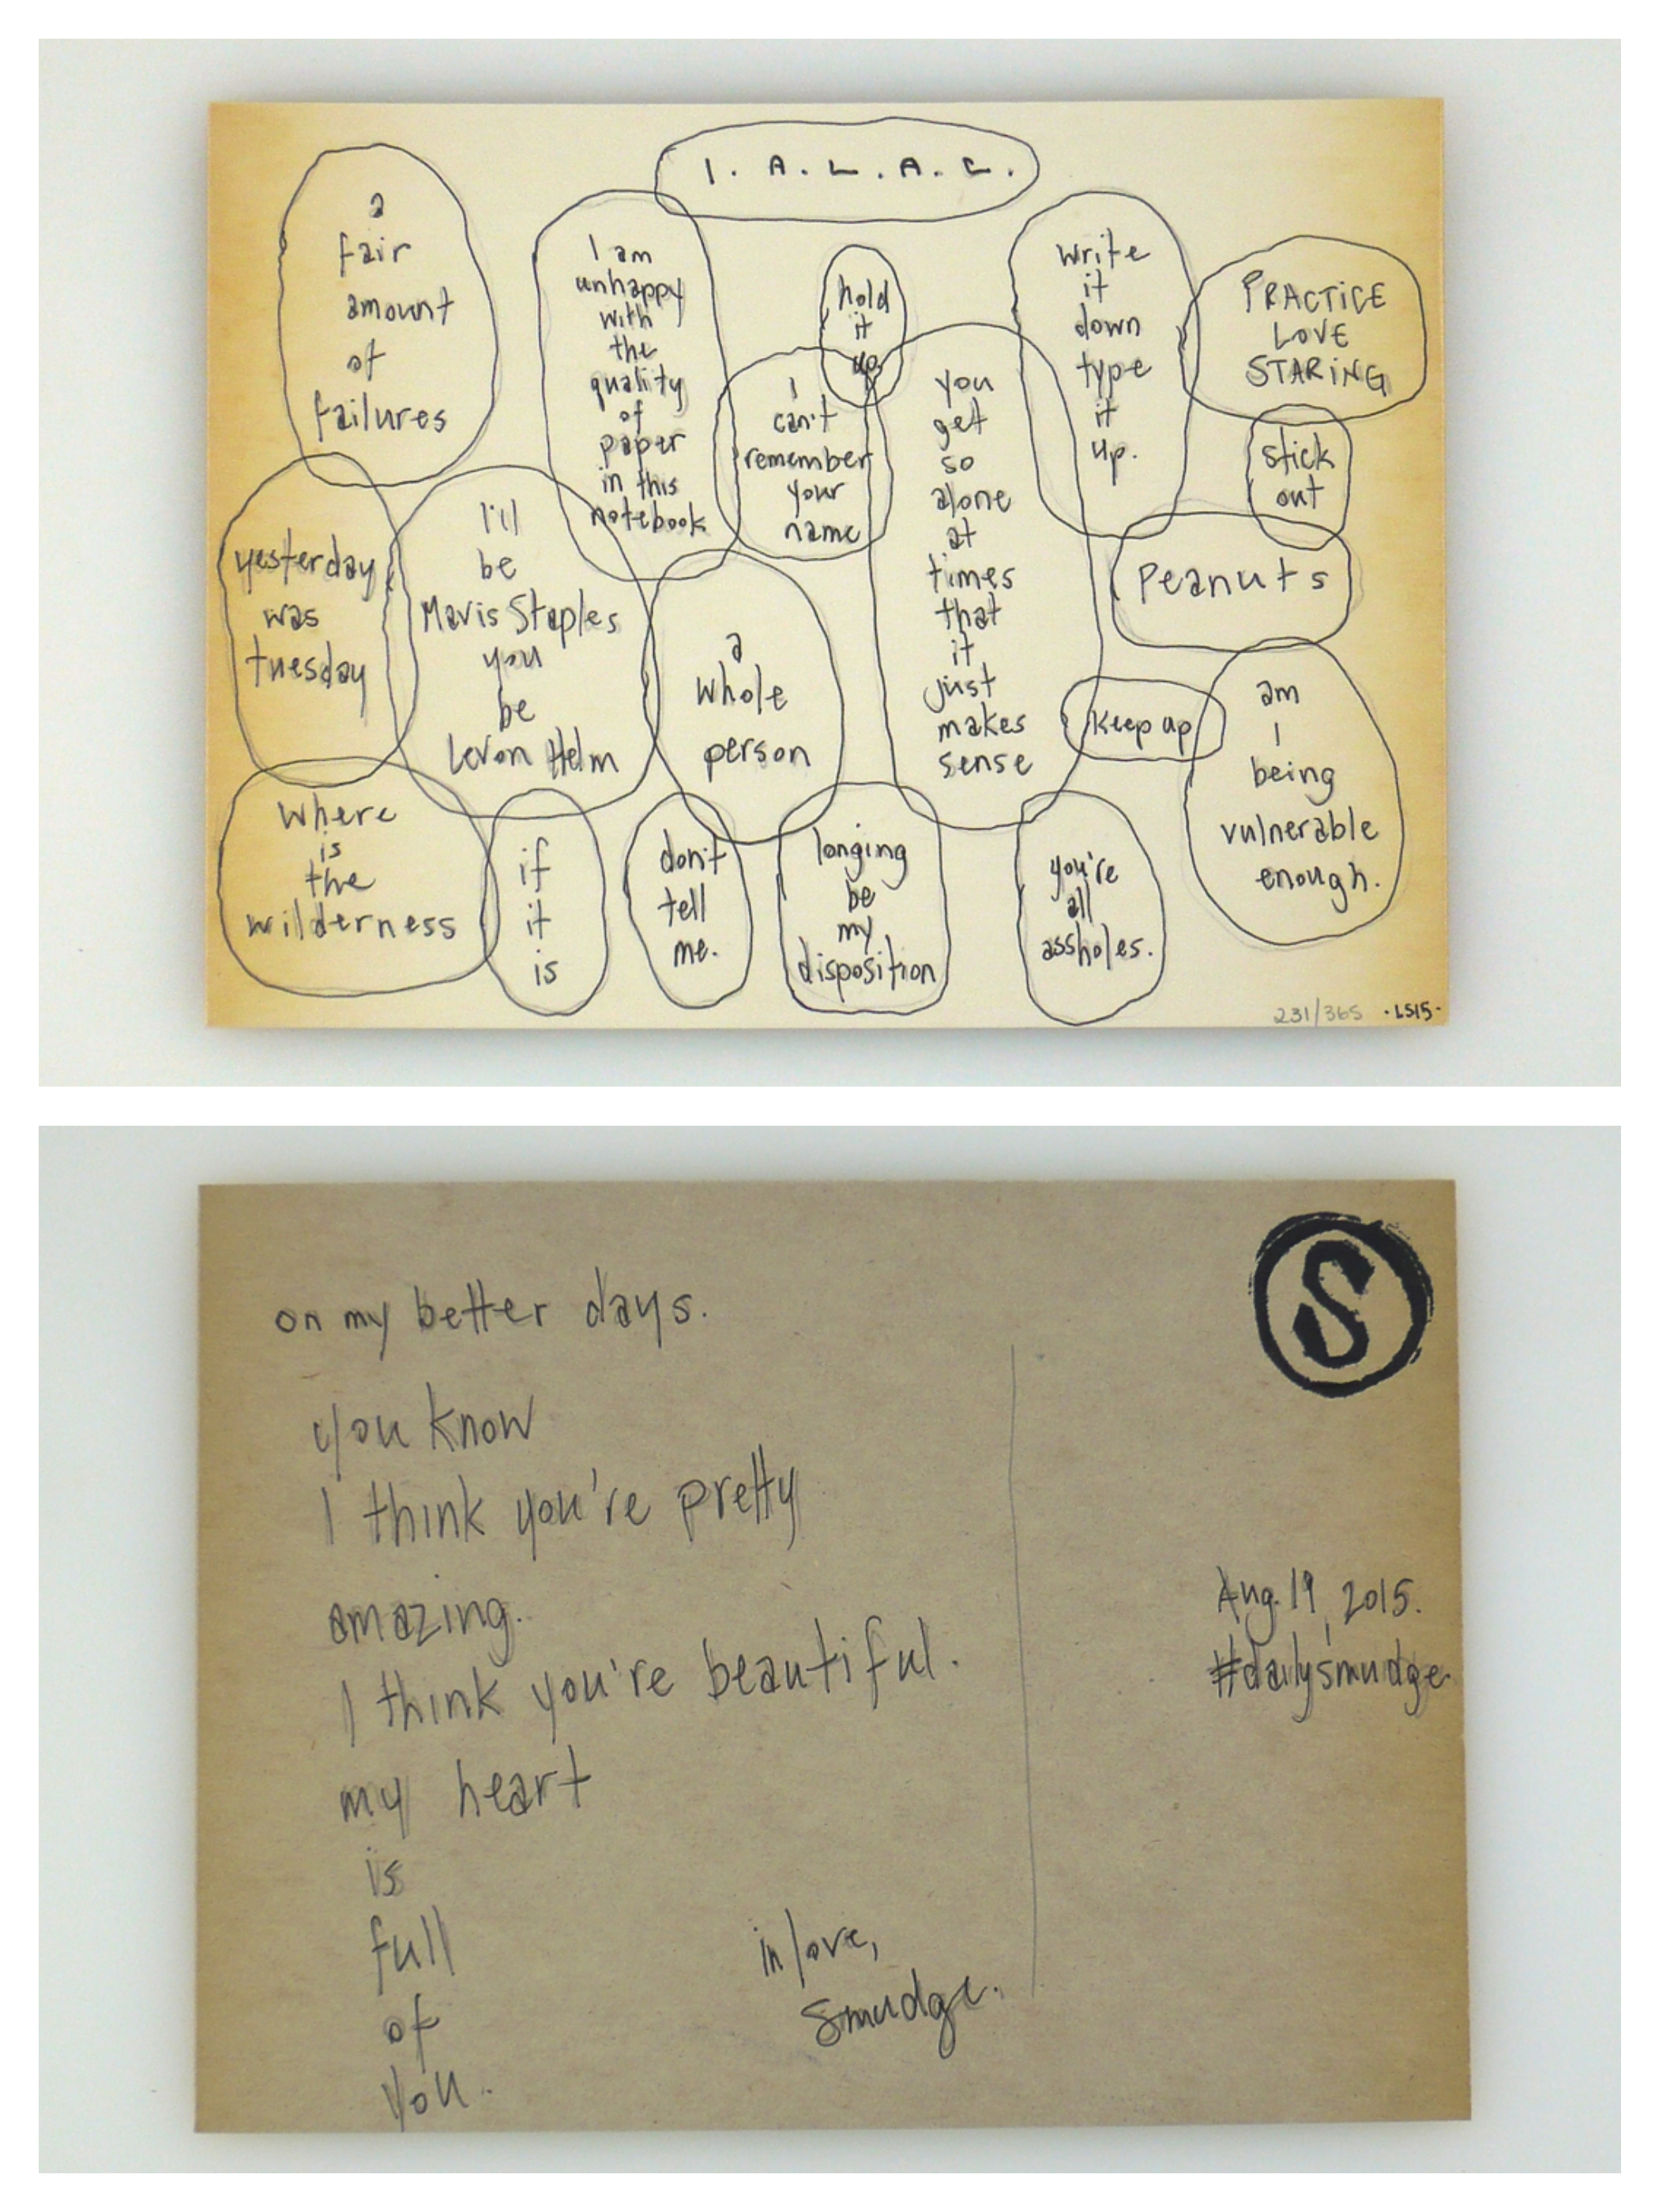 I. A. L. A. C.
a
fair
amount
of
failures
I am
unhappy
with
the
quality
of
paper
in this
notebook
hold
it
up
write
it
down
type
it
up.
PRACTICE
LOVE
STARING
I
can't
remember
your
name
you
get
so
alone
at
times
that
it
just
makes
sense
stick
out
yesterday
was
tuesday
I'll
be
Mavis Staples
you
be
Levon Helm
a
whole
person
Peanuts
Keep up
am
I
being
vulnerable
enough.
where
is
the
wilderness
if
it
is
don't
tell
me.
longing
be
my
disposition
you're
all
assholes.
231/365 ·LS15·
S
on my better days.
you know
I think you're pretty
amazing.
I think you're beautiful.
my heart
is
full
of
you.
in love,
Smudge.
Aug. 19, 2015.
#dailysmudge